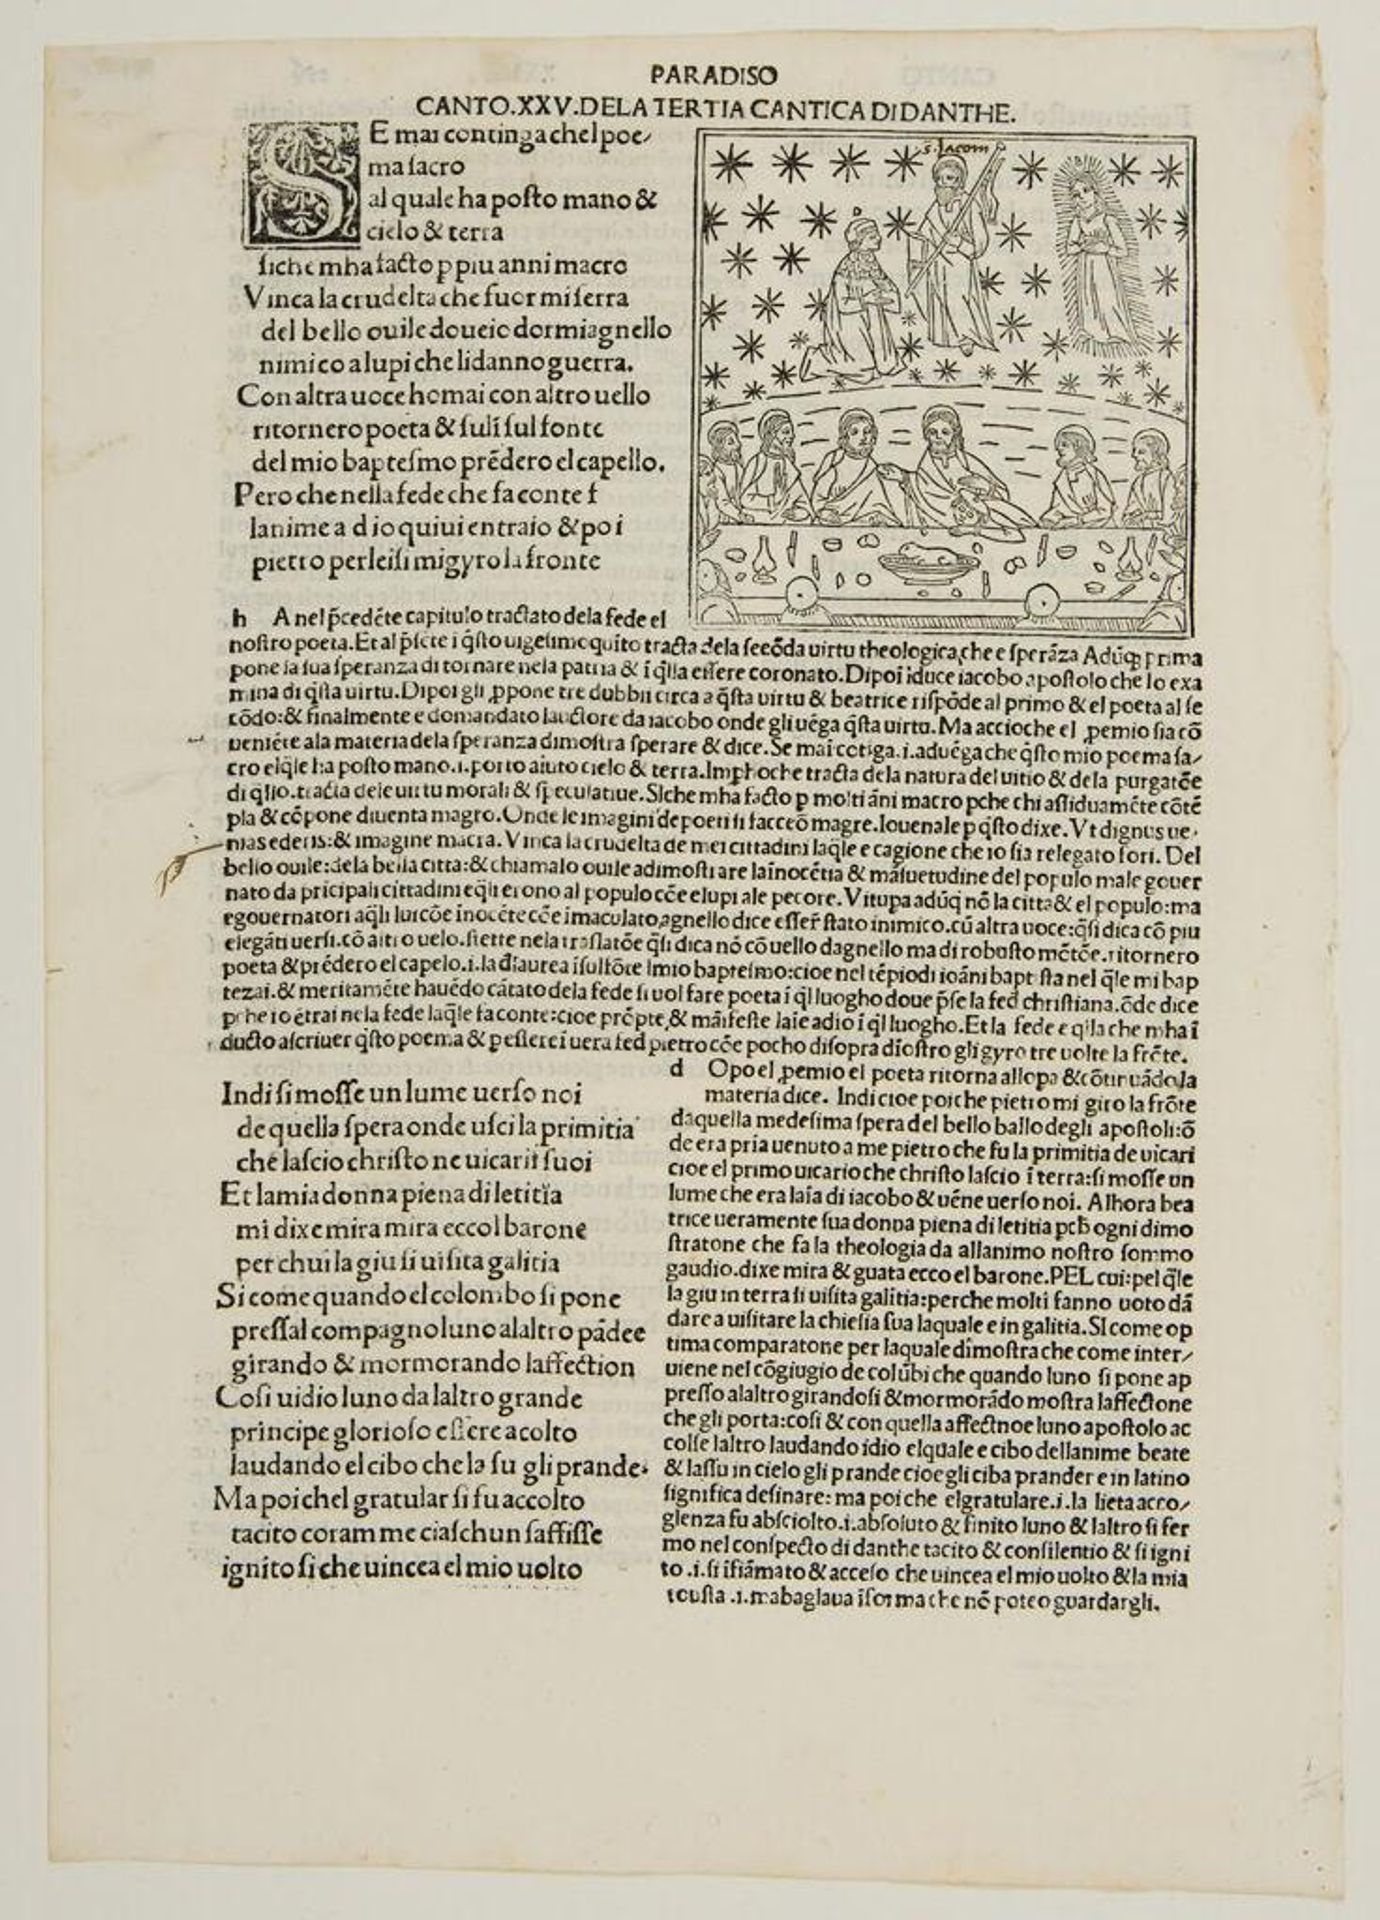 PARADISO
CANTO.XXV.DELA TERTIA CANTICA DI DANTHE.
SE mai continga chel poe/
ma sacro
al quale ha posto mano &
cielo & terra
siche mha facto p piu anni macro
Vinca la crudelta che fuor mi serra
del bello ouile doueio dormi agnello
nimico a lupi che li danno guerra.
Con altra uoce homai con altro uello
ritornero poeta & sulī sul fonte
del mio baptesmo prēdero el capello.
Pero che nella fede che fa conte
lanime a dio quiui entraio & poi
pietro per lei si mi gyro la fronte
s. Iacom
h A nel p̄cedēte capitulo tractato dela fede el
nostro poeta. Et al p̄sēte i q̄sto uigesimo quīto tracta dela secōda uirtu theologica, che e sperāza Adūq; prima
pone la sua speranza di tornare nela patria & ī q̄lla essere coronato. Dipoī īduce iacobo apostolo che lo exa
mina di q̄sta uirtu. Dipoi gli ,ppone tre dubbii circa a q̄sta uirtu & beatrice rispōde al primo & el poeta al se
cōdo: & finalmente e domandato lauctore da iacobo onde gli uēga q̄sta uirtu. Ma accioche el ,pemio sia cō
ueniēte ala materia dela speranza dimostra sperare & dice. Se mai cōtiga .i. aduēga che q̄sto mio poema sa/
cro elq̄le ha posto mano .i. porto aiuto cielo & terra. Impħoche tracta dela natura del uitio & dela purgatōe
di q̄llo. tracta dele uirtu morali & speculatiue. SIche mha facto p molti āni macro pche chi assiduamēte cōtē
pla & cōpone diuenta magro. Onde le imagini de poeti si facceō magre. Iouenale p q̄sto dixe. Vt dignus ue.
nias ederis: & imagine macra. Vinca la crudelta de mei cittadini laq̄le e cagione che io sia relegato fori. Del
bello ouile: dela bella citta: & chiamalo ouile a dimostrare la īnocētia & māsuetudine del populo male gouer
nato da pricipali cittadini eq̄li erono al populo cōe e lupi ale pecore. Vitupa adūq̄ nō la citta & el populo: ma
e gouernatori aq̄li lui cōe inocēte cōe imaculato agnello dice esser̄ stato inimico. cū altra uoce: q̄si dica cō piu
elegāti uersi. cō altro uelo. stette nela traslatōe q̄si dica nō cō uello dagnello ma di robusto mōtōe. ritornero
poeta & prēdero el capelo .i. la
baptesmo: cioe nel tēpio di ioāni bapt sta nel q̄le mi bap
tezai. & meritamēte hauēdo cātato dela fede si uol fare poeta ī q̄l luogho doue p̄se la fed christiana. ōde dice
pche io ētrai nela fede laq̄le fa conte: cioe prōpte, & māifeste laīe a dio ī q̄l luogho. Et la fede e q̄lla che mha ī
ducto a scriuer q̄sto poema & p essere ī uera fed pietro cōe pocho disopra dīostro gli gyro tre uolte la frōte.
Indi si mosse un lume uerso noi
de quella spera onde usci la primitia
che lascio christo ne uicarii suoi
Et la mia donna piena di letitia
mi dixe mira mira eccol barone
per chui la giu si uisita galitia
Si come quando el colombo si pone
pressal compagno luno alaltro pādee
girando & mormorando laffection
Cosi uidio luno da laltro grande
principe glorioso essere acolto
laudando el cibo che la su gli prande.
Ma poi chel gratular si fu accolto
tacito coram me ciaschun saffisse
ignito si che uincea el mio uolto
d Opo el ,pemio el poeta ritorna allopa & cōtinuādo la
materia dice. Indi cioe poi che pietro mi giro la frōte
da quella medesima spera del bello ballo degli apostoli: ō
de era pria uenuto a me pietro che fu la primitia de uicari
cioe el primo uicario che christo lascio ī terra: si mosse un
lume che era laīa di iacobo & uēne uerso noi. Alhora bea
trice ueramente sua donna piena di letitia pcħ ogni dimo
stratone che fa la theologia da allanimo nostro sommo
gaudio. dixe mira & guata ecco el barone. PEL cui: pel q̄le
la giu in terra si uisita galitia: perche molti fanno uoto dā
dare a uisitare la chiesia sua laquale e in galitia. SI come op
tima comparatone per laquale dīmostra che come inter/
uiene nel cōgiugio de colūbi che quando luno si pone ap
presso alaltro girandosi & mormorādo mostra laffectone
che gli porta: cosi & con quella affectnoe luno apostolo ac
colse laltro laudando idio elquale e cibo dellanime beate
& lassu in cielo gli prande cioe gli ciba prander e in latino
significa desinare: ma poi che el gratulare .i. la lieta acco/
glenza fu absciolto .i. absoluto & finito luno & laltro si fer
mo nel conspecto di danthe tacito & con silentio & si igni
to .i. si īfiāmato & acceso che uincea el mio uolto & la mia
.i. mabaglaua ī forma che nō poteo guardargli.